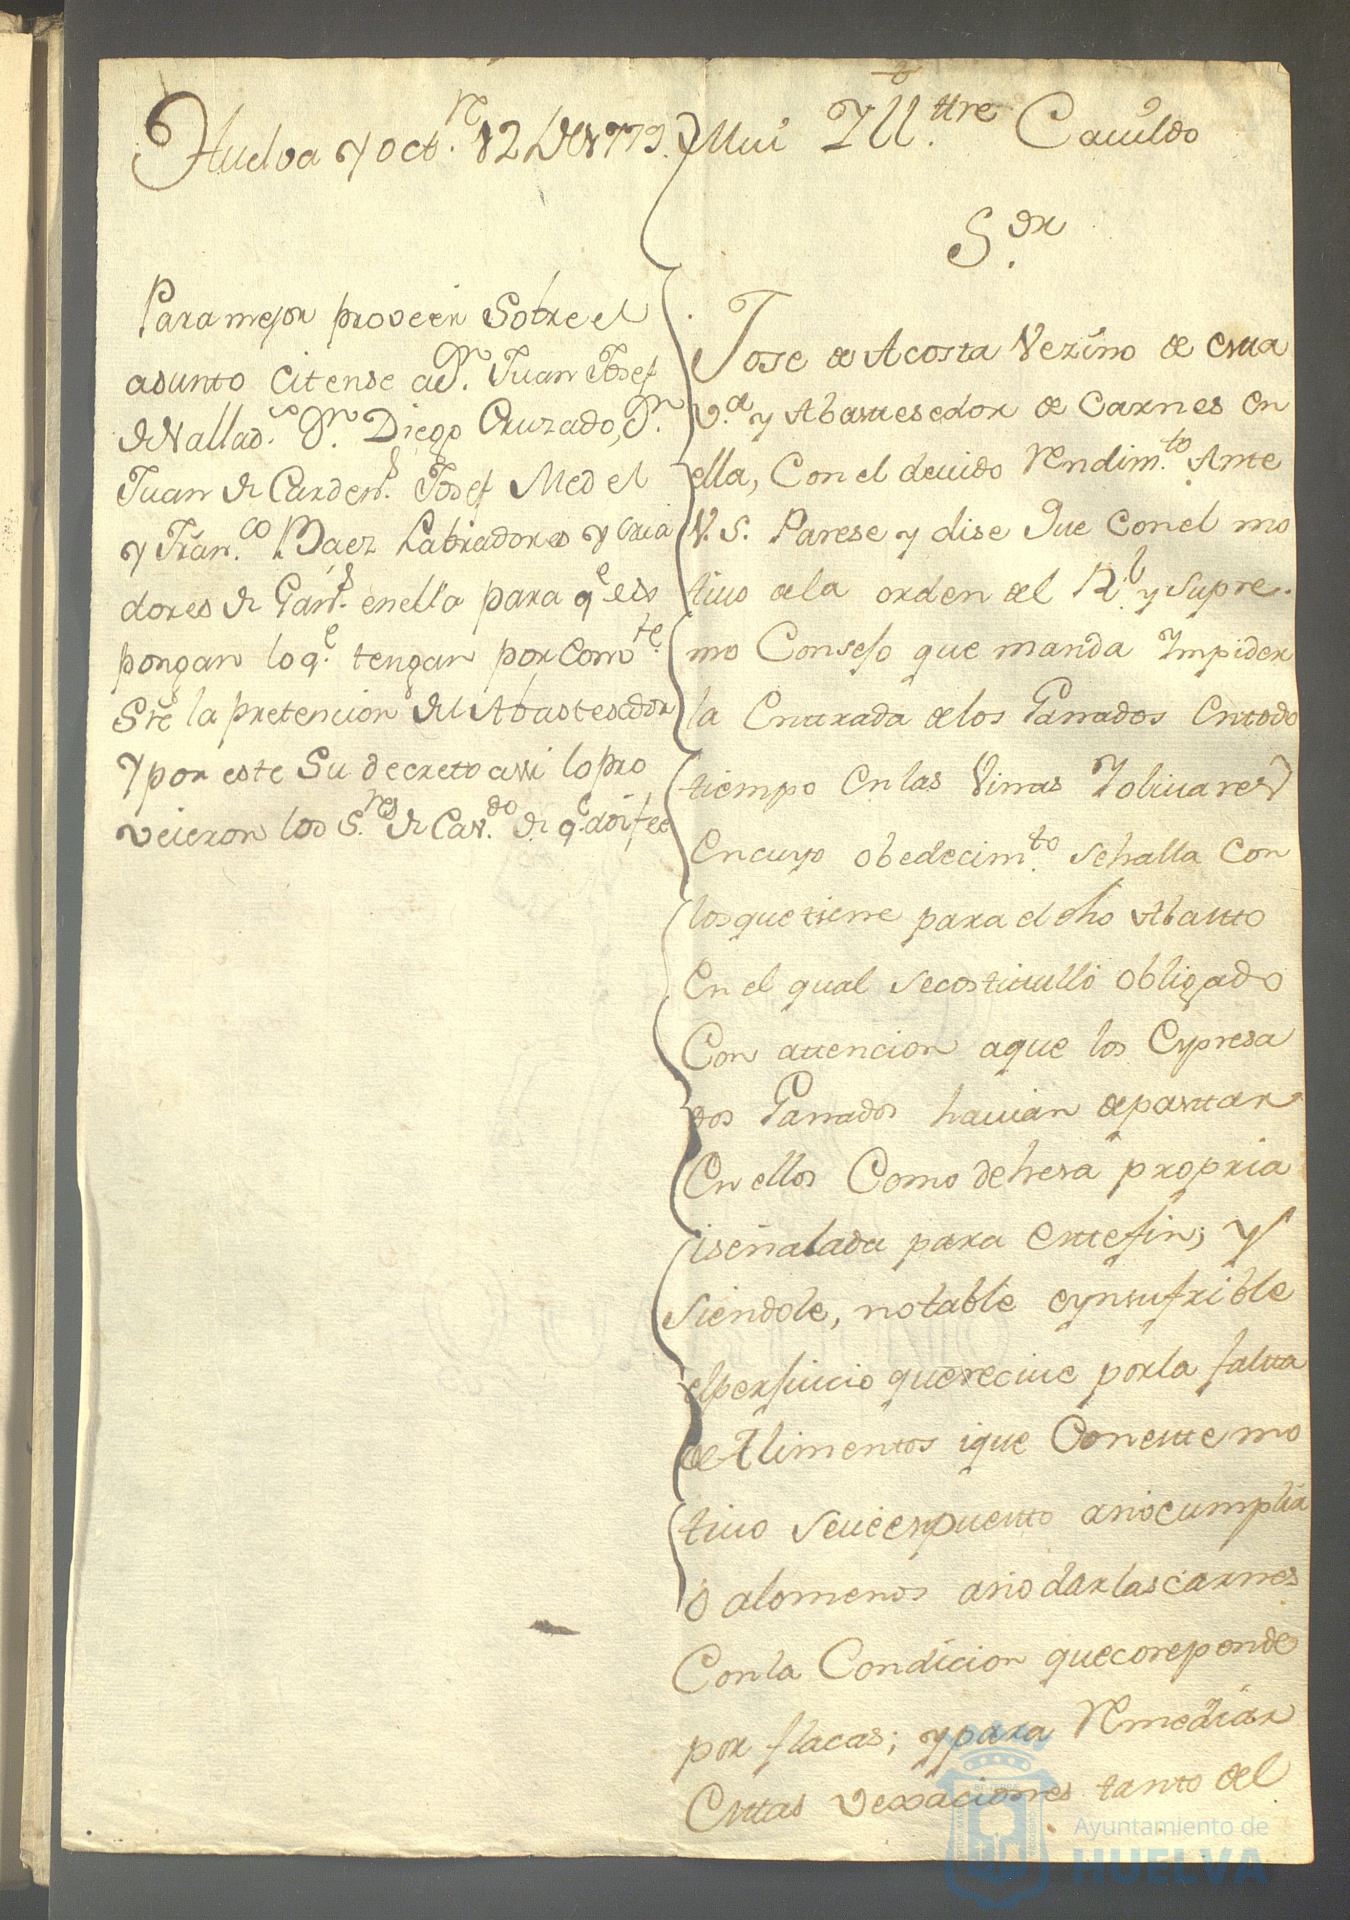 Huelva y octre. 12 de 1779.
Para mejor proveer Sobre el
asunto Citense a Dn. Juan Josef
de Vallado. Dn. Diego Cruzado, Dn.
Juan de Cardens. Josef Medel
y Franco. Baez Labradores y cria
dores de Gands. en ella para qe. es
pongan lo qe. tengan por Combte.
Sre la pretencion del Abastesedor
y por este Su decretto assi lo pro
veieron los Sres. de Cavdo. de qe. doi fee
Mui Yllttre. Cavildo
Sor.
Jose de Acosta Vezino de esta
va. y Abastesedor de Carnes en
ella, Con el devido Rendimto. Ante
V. S. Parese y dise Que con el mo
tivo de la orden del Rl. y Supre.
mo Consejo que manda Impider
la Entrada de los Ganados en todo
tiempo en las Vinas Y olivares
en cuyo obedecimto. se halla con
los que tiene para el dho Abastto
en el qual se costitullo obligado
Con attencion a que los Espresa
dos Ganados havian de pastar
en ellos Como dehesa propria
i señalada para este fin; y
siendole, notable e ynsufrible
el perjuicio que recive por la falta
de Alimentos i que Con este mo
tivo se ve espuesto a no cumplir
o a lo menos a no dar las carnes
Con la Condicion que coreponde
por flacas; y para Remediar
Estas vexaciones tanto del
Ayuntamiento de
HUELVA